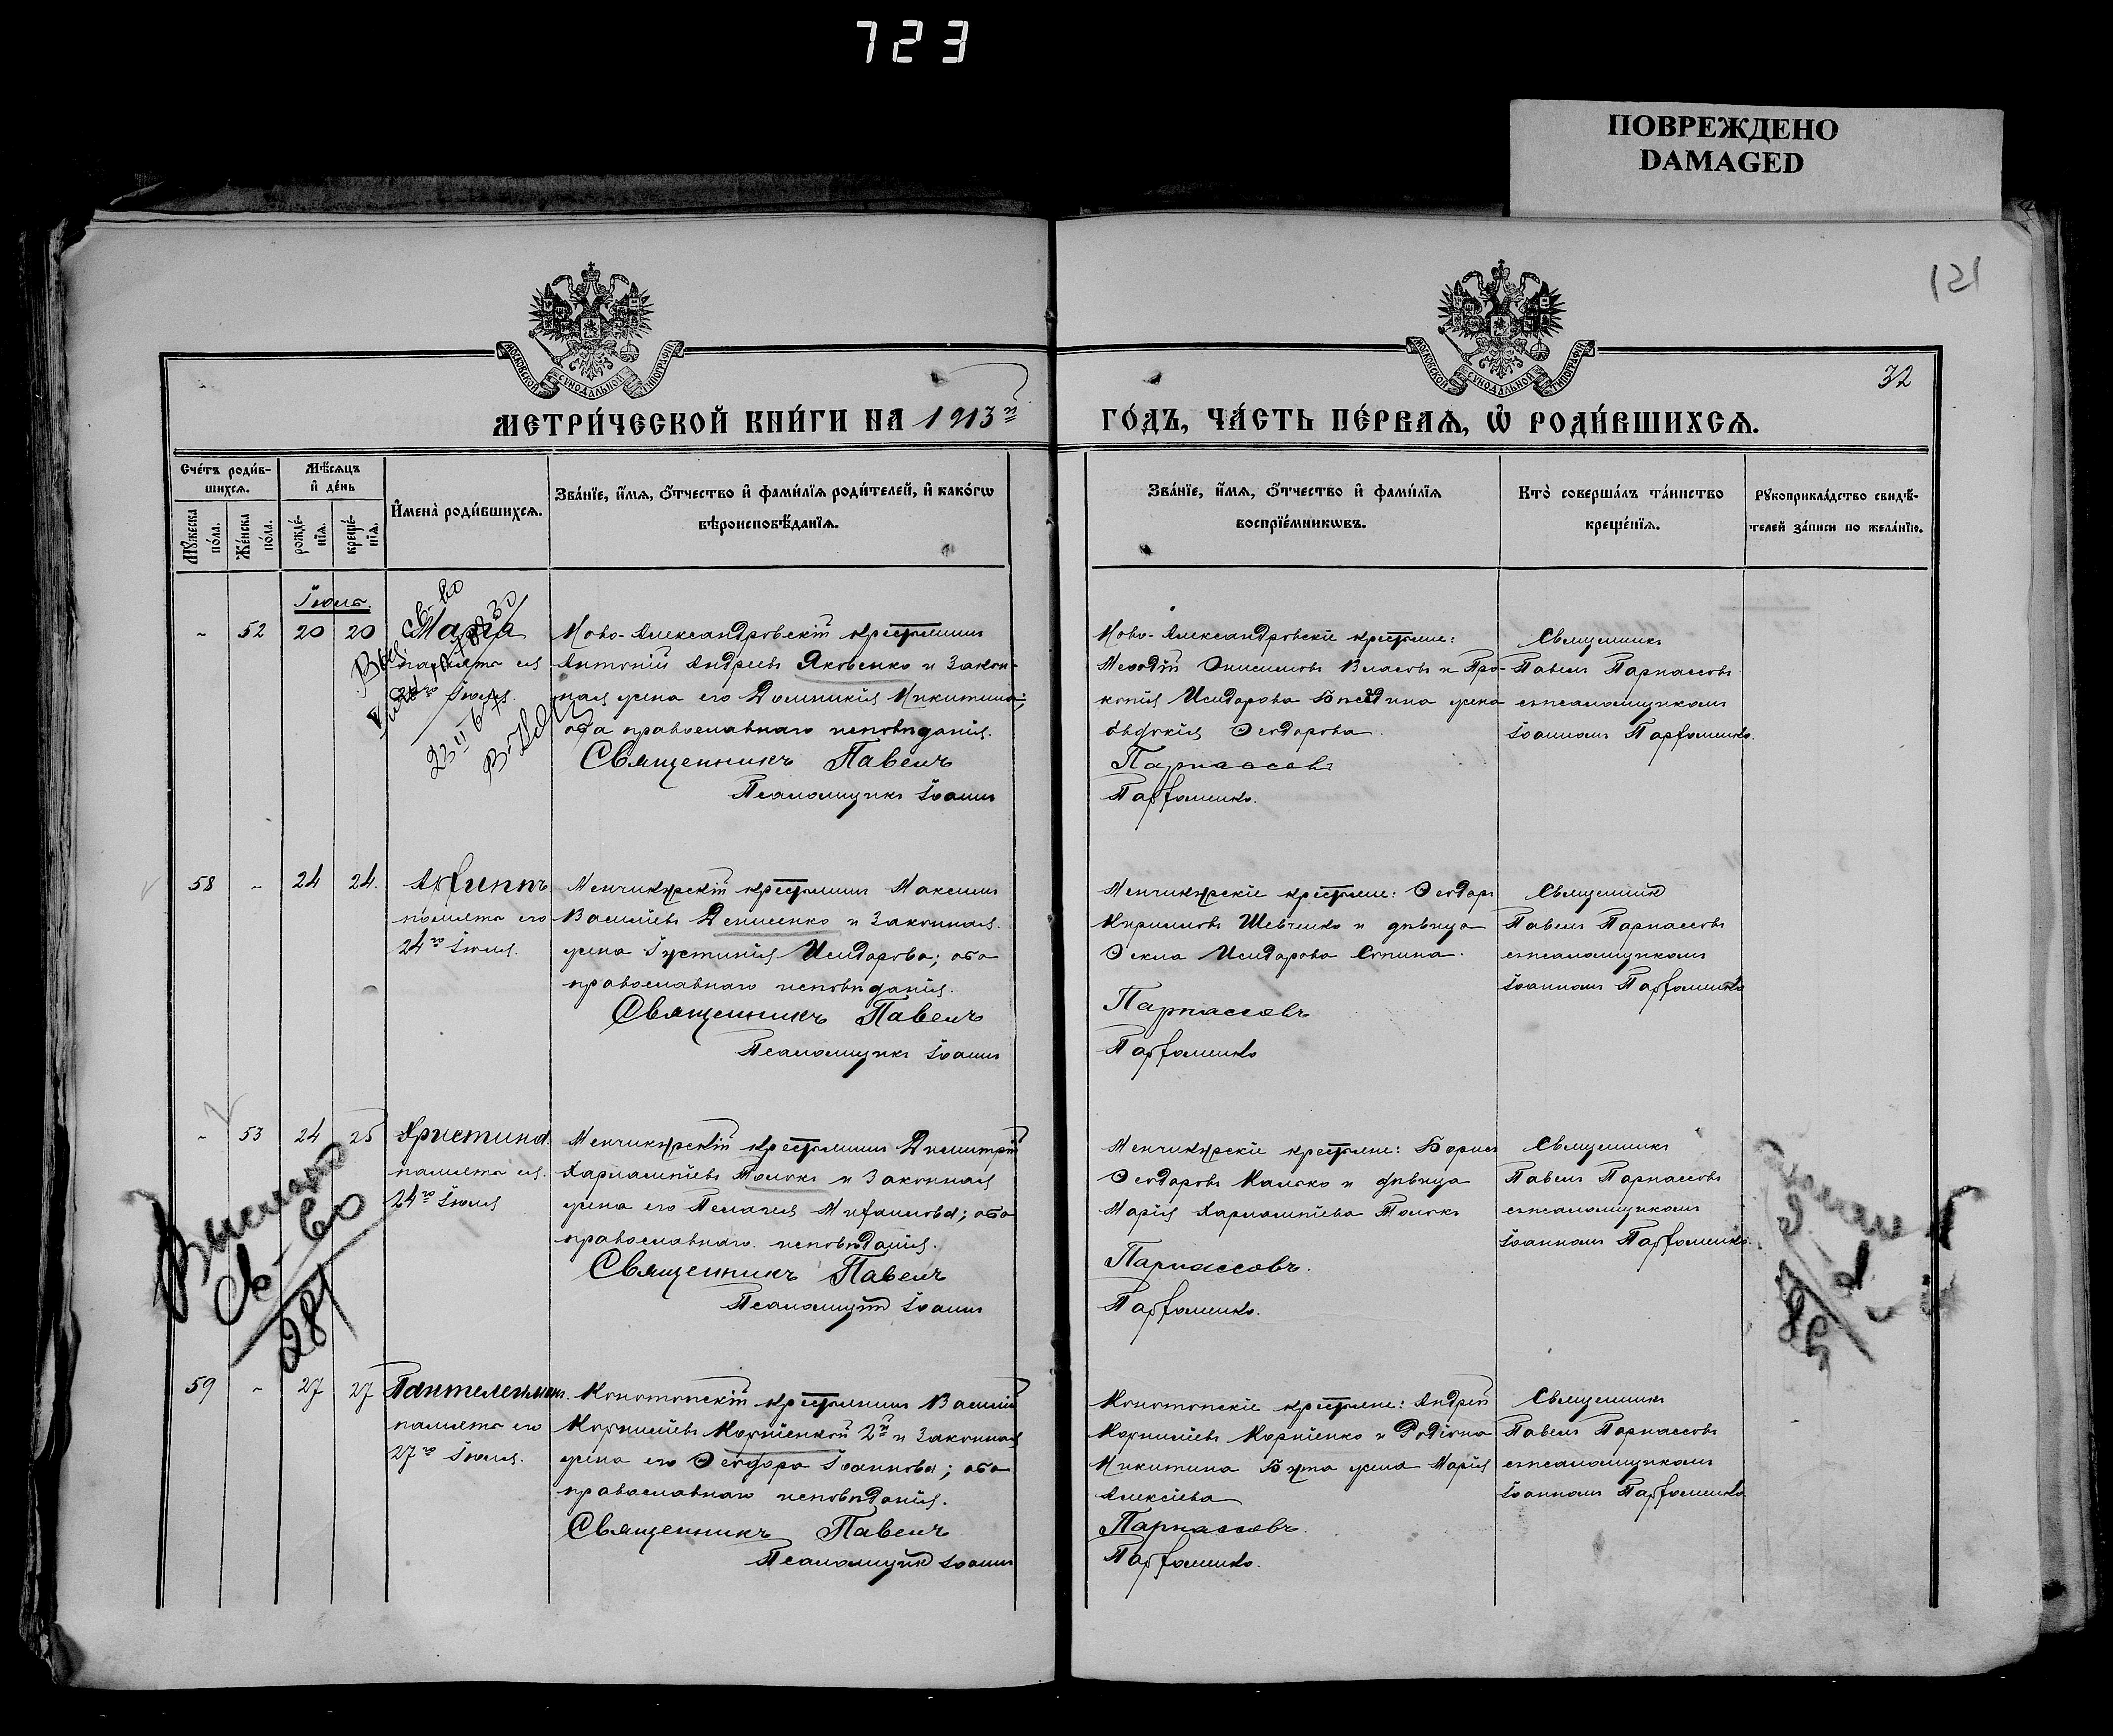 723
ПОВРЕЖДЕНО
DAMAGED
121
32
МОСКОВСКОЙ СѴНОДАЛЬНОЙ ТИПОГРАФІИ
МОСКОВСКОЙ СѴНОДАЛЬНОЙ ТИПОГРАФІИ
МЕТРИ́ЧЕСКОЙ КНИ́ГИ НА 1913й ГО́ДЪ, ЧА́СТЬ ПЕ́РВАѦ, Ѡ РОДИ́ВШИХСѦ.
Сче́тъ роди́вшихсѧ.
Мꙋжеска по́ла.
Же́нска по́ла.
Мѣ́сѧцъ и҆ де́нь
рожде́нїѧ.
креще́нїѧ.
И҆мена̀ роди́вшихсѧ.
Зва́нїе, и҆́мѧ, ѻ҆́тчество и҆ фами́лїѧ роди́телей, и҆ како́гѡ
вѣроисповѣ́данїѧ.
Зва́нїе, и҆́мѧ, ѻ҆́тчество и҆ фами́лїѧ
воспрїе́мникѡвъ.
Кто̀ соверша́лъ та́инство
креще́нїѧ.
Рꙋкоприкла́дство свидѣ́-
телей за́писи по жела́нїю.
Іюль.
- 52 20 20
Марія
память ея
Іюля.
Ново-Александровскій крестьянинъ
Антоній Андреевъ Яковенко и закон-
ная жена его Домникія Никитина;
оба православнаго исповѣданія.
Священникъ Павелъ
Псаломщикъ Іоаннъ
Ново-Александровскіе крестьяне:
Меѳодій Онисимовъ Власовъ и Про-
копія Исидорова жена
Евдокія Ѳеодорова.
Парнассовъ
Парфоменко.
Священникъ
Павелъ Парнассовъ
съ псаломщикомъ
Іоанномъ Парфоменко.
58 - 24 24.
Архиппъ
память его
24го Іюля.
Менчикурскій крестьянинъ Максимъ
Василіевъ Денисенко и законная
жена Іустинія Исидорова; оба
православнаго исповѣданія.
Священникъ Павелъ
Псаломщикъ Іоаннъ
Менчикурскіе крестьяне: Ѳеодоръ
Кирилловъ Шевченко и дѣвица
Ѳекла Исидорова
Парнассовъ
Парфоменко
Священникъ
Павелъ Парнассовъ
съ псаломщикомъ
Іоанномъ Парфоменко
- 53 24 25
Христина.
память ея.
24го Іюля
Менчикурскій крестьянинъ Димитрій
Харлампіевъ Толокъ и законная
жена его Пелагія Михаилова; оба
православнаго исповѣданія.
Священникъ Павелъ
Псаломщикъ Іоаннъ
Менчикурскіе крестьяне: Борисъ
Ѳеодоровъ Калюко и дѣвица
Марія Харлампіева Толокъ
Парнассовъ.
Парфоменко.
Священникъ
Павелъ Парнассовъ
съ псаломщикомъ
Іоанномъ Парфоменко.
св-во
281
59 - 27 27
Пантелеимонъ.
память его
27го Іюля.
Конотопскій крестьянинъ Василій
Корниліевъ Корніенко 2й и законная
жена его Ѳеодора Іоаннова; оба
православнаго исповѣданія.
Священникъ Павелъ
Псаломщикъ Іоаннъ
Конотопскіе крестьяне: Андрей
Корниліевъ Корніенко и Родіона
Никитина Бута жена Марія
Алексіева
Парнассовъ.
Парфоменко.
Священникъ
Павелъ Парнассовъ
съ псаломщикомъ
Іоанномъ Парфоменко